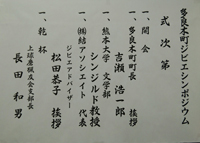 多良木町ジビエシンポジウム
式次第
一、開会
一、多良木町町長 挨拶
吉瀬 浩一郎
一、熊本大学 文学部
シンジルト教授
一、㈱結アソシエイト 代表
ジビエアドバイザー
松田恭子 挨拶
一、乾杯
上球磨猟友会支部長
長田和男